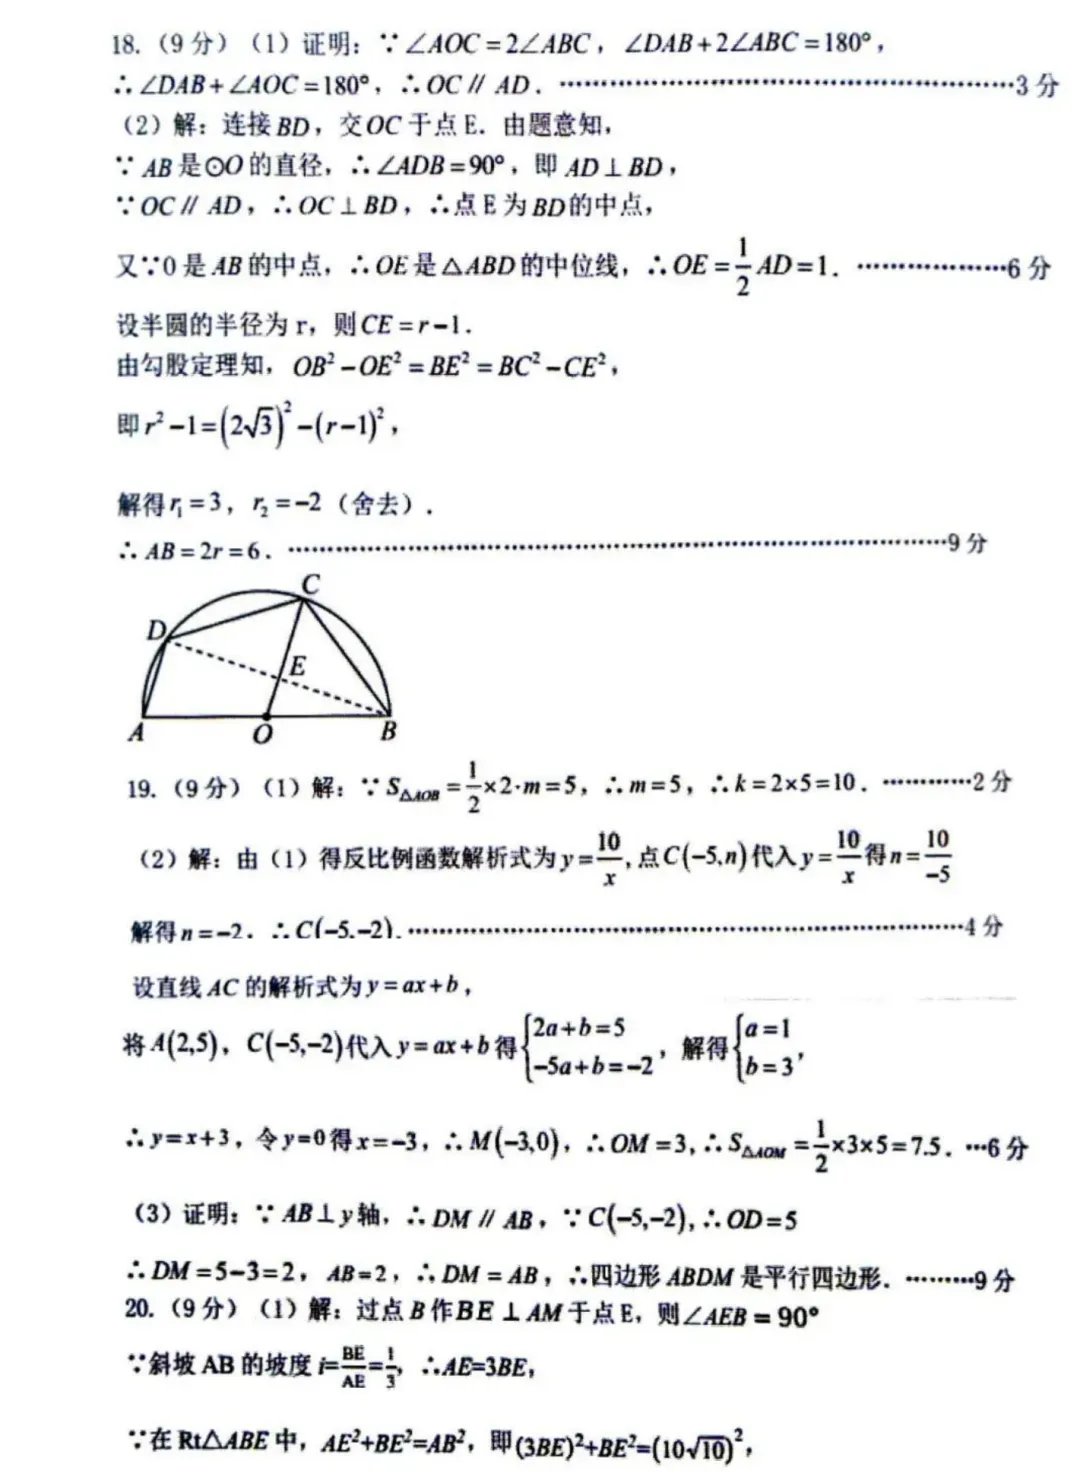 18.（9 分）（1）证明：∵∠AOC=2∠ABC，∠DAB+2∠ABC=180°，
∴∠DAB+∠AOC=180°，∴OC∥AD．………………………………………3 分
（2）解：连接BD，交OC于点E．由题意知，
∵AB是⊙O的直径，∴∠ADB=90°，即AD⊥BD，
∵OC∥AD，∴OC⊥BD，∴点E为BD的中点，
又∵0是AB的中点，∴OE是△ABD的中位线，∴OE=1/2AD=1．………………6 分
设半圆的半径为r，则CE=r−1．
由勾股定理知，OB²−OE²=BE²=BC²−CE²，
即r²−1=(2√3)²−(r−1)²，
解得r₁=3，r₂=−2（舍去）．
∴AB=2r=6．………………………………………………………9 分
C
D
E
A
O
B
19.（9 分）（1）解：∵S△AOB=1/2×2·m=5，∴m=5，∴k=2×5=10．…………2 分
（2）解：由（1）得反比例函数解析式为y=10/x，点C(−5,n)代入y=10/x得n=10/−5
解得n=−2．∴C(−5,−2)．………………………………………………4 分
设直线AC的解析式为y=ax+b，
将A(2,5)，C(−5,−2)代入y=ax+b得{2a+b=5 −5a+b=−2，解得{a=1 b=3，
∴y=x+3，令y=0得x=−3，∴M(−3,0)，∴OM=3,∴S△AOM=1/2×3×5=7.5．…6 分
（3）证明：∵AB⊥y轴，∴DM∥AB，∵C(−5,−2),∴OD=5
∴DM=5−3=2，AB=2，∴DM=AB，∴四边形ABDM是平行四边形．………9 分
20.（9 分）（1）解：过点B作BE⊥AM于点E，则∠AEB=90°
∵斜坡AB的坡度i=BE/AE=1/3，∴AE=3BE，
∵在Rt△ABE中，AE²+BE²=AB²，即(3BE)²+BE²=(10√10)²，